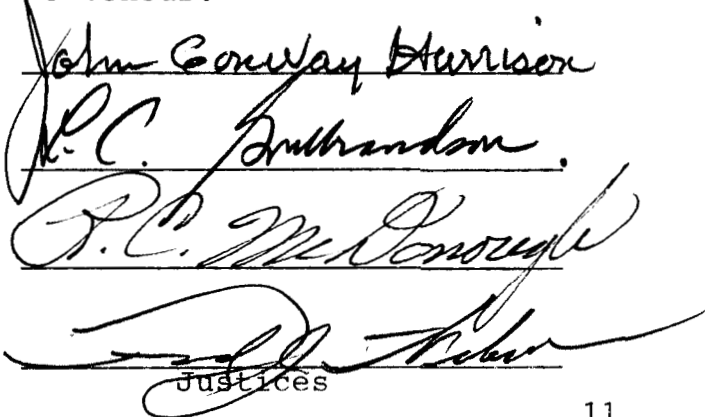 concur:
John Conway Harrison
L. C. Gulbrandson
R. C. McDonough
Justices
11